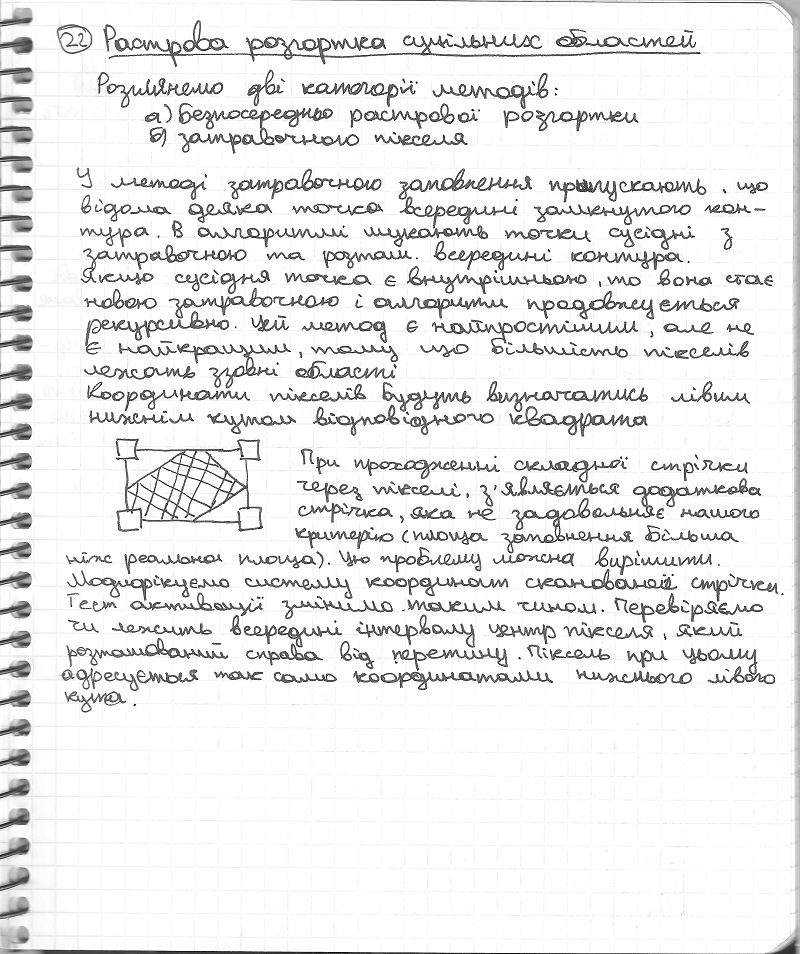 22 Растрова розгортка суцільних областей
Розглянемо дві категорії методів:
а) Безпосередньо растрової розгортки
б) затравочного пікселя
У методі затравочного заповнення припускають, що
відома деяка точка всередині замкнутого кон-
тура. В алгоритмі шукають точки сусідні з
затравочною та розташ. всередині контура.
Якщо сусідня точка є внутрішньою, то вона стає
новою затравочною і алгоритм продовжується
рекурсивно. Цей метод є найпростішим, але не
є найкращим, тому що більшість пікселів
лежать ззовні області
Координати пікселів будуть визначатись лівим
нижнім кутом відповідного квадрата
При проходженні складної стрічки
через пікселі, з'являється додаткова
стрічка, яка не задовольняє нашого
критерію (площа заповнення більша
ніж реальна площа). Цю проблему можна вирішити.
Модифікуємо систему координат сканованої стрічки.
Тест активації змінимо таким чином. Перевіряємо
чи лежить всередині інтервалу центр пікселя, який
розташований справа від перетину. Піксель при цьому
адресується так само координатами нижнього лівого
кута.